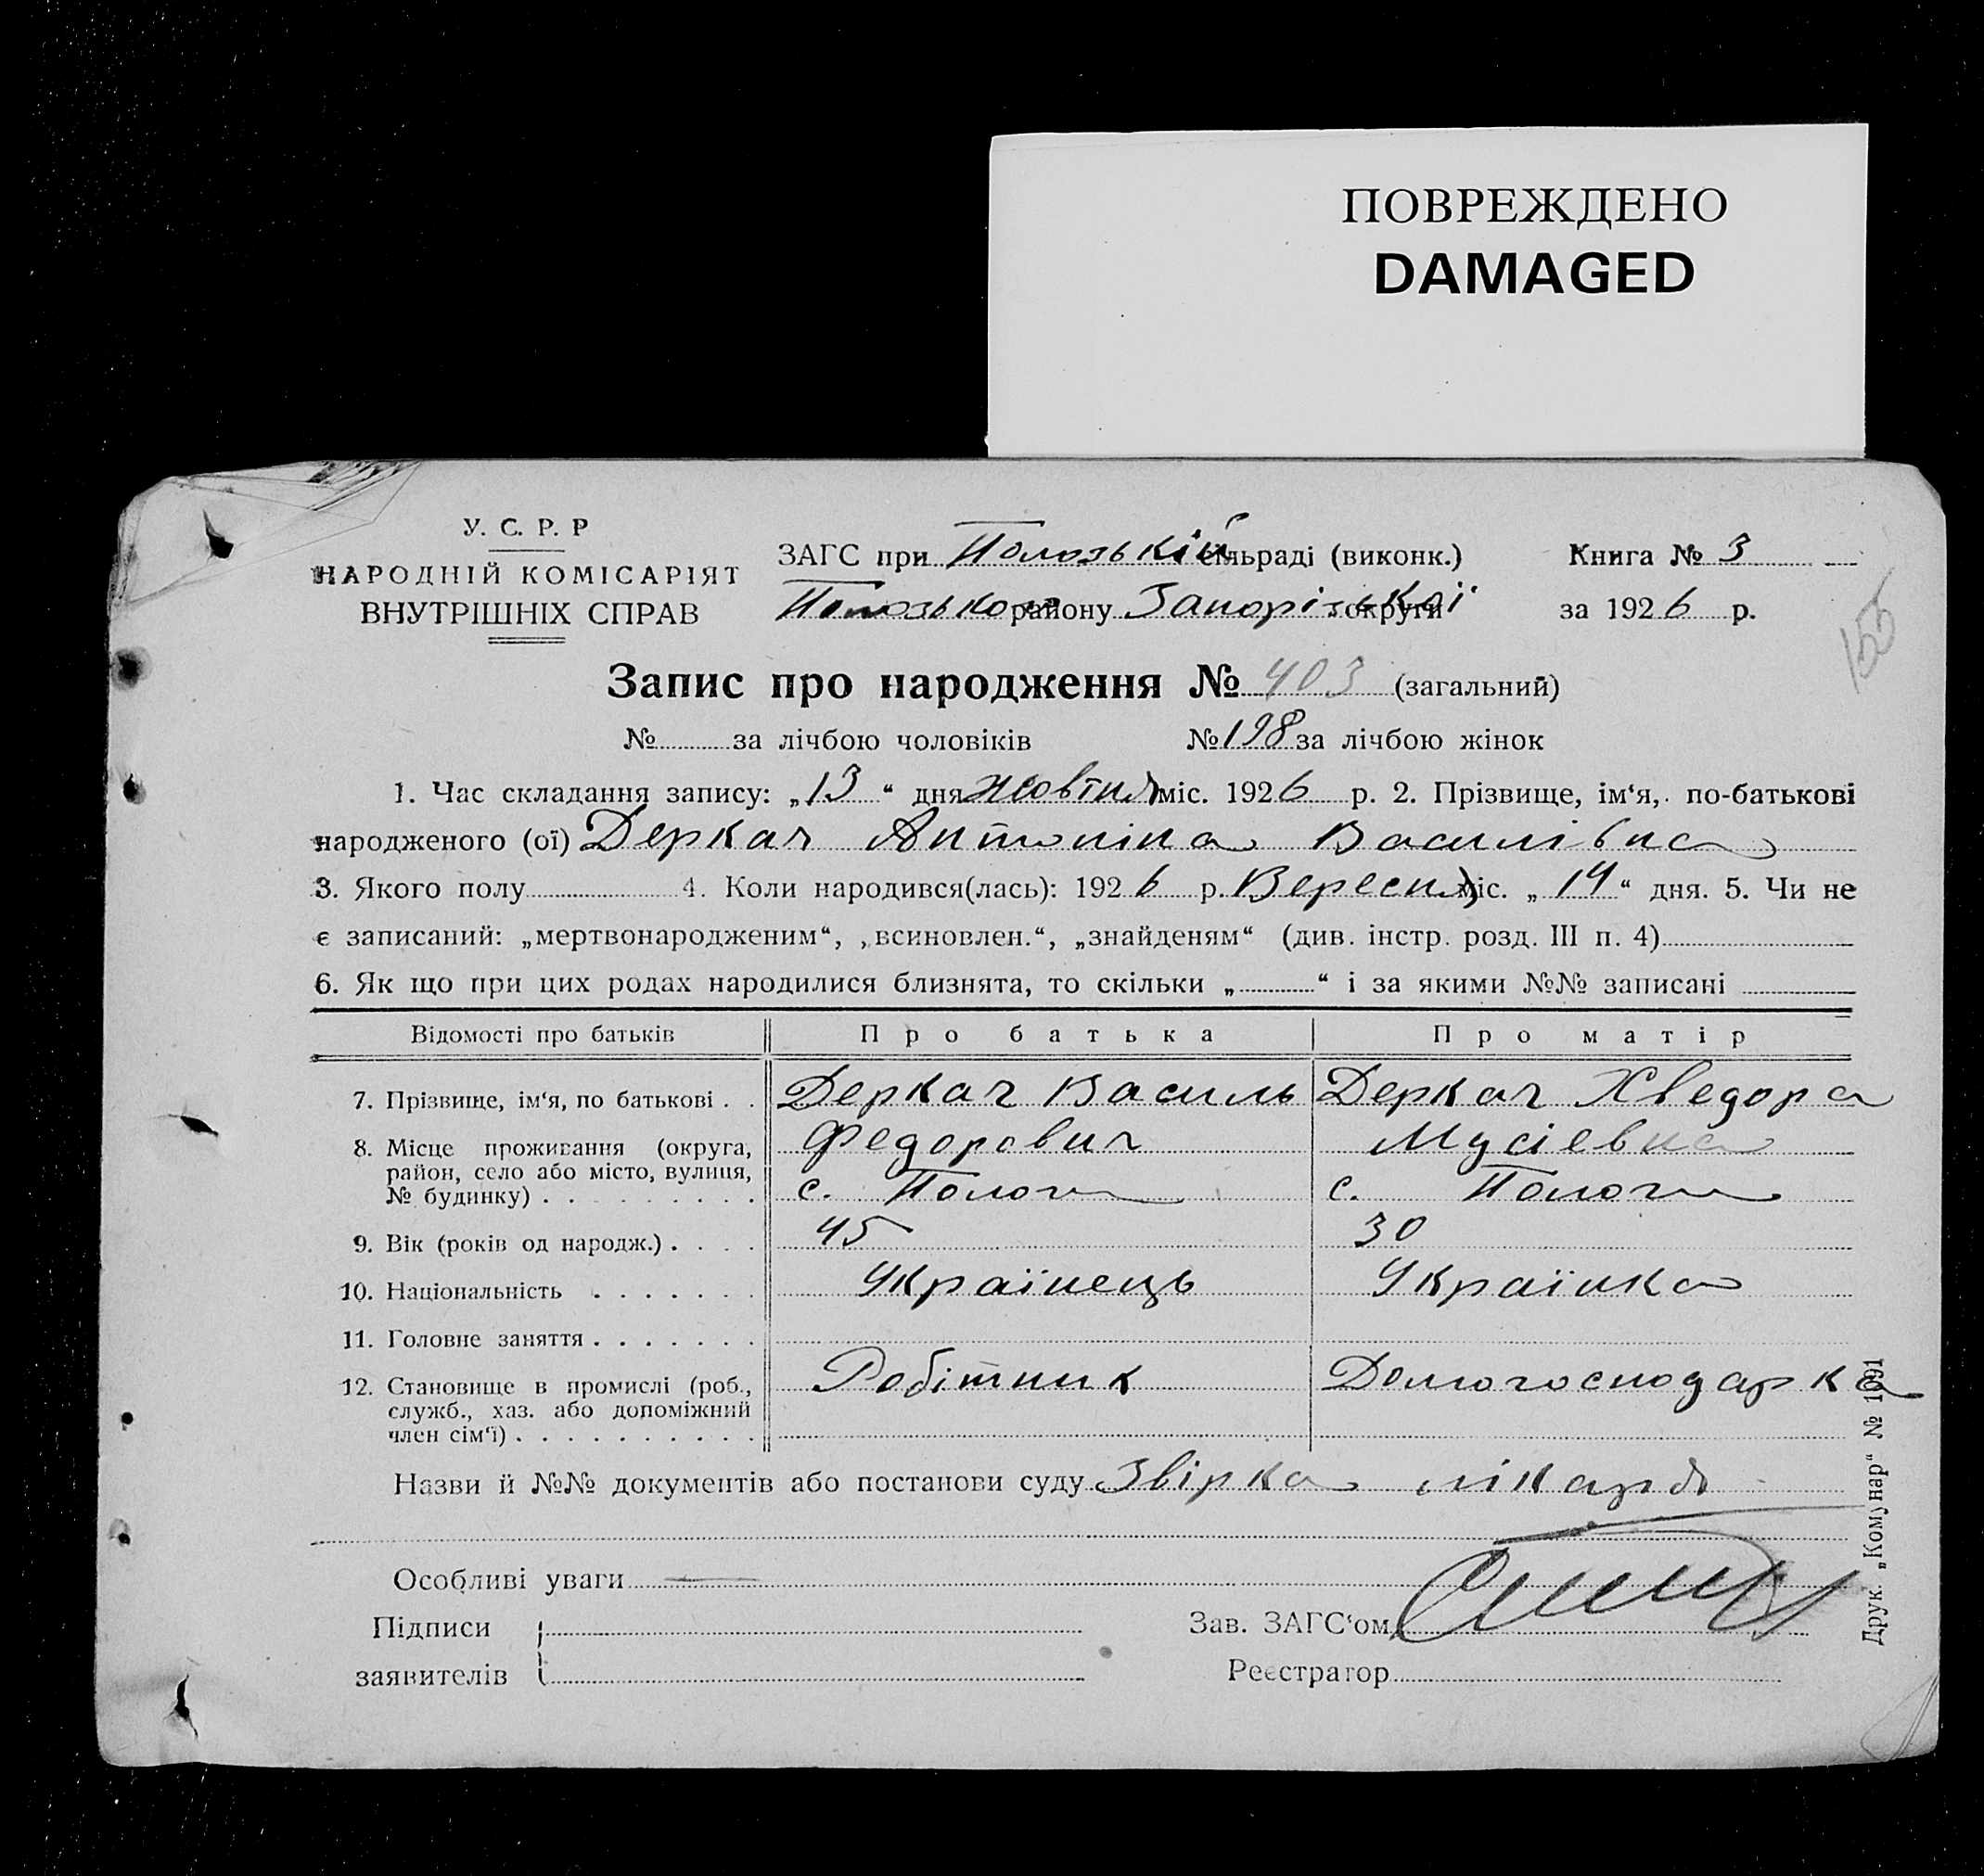 ПОВРЕЖДЕНО
DAMAGED
У. С. Р. Р
НАРОДНІЙ КОМІСАРІЯТ
ВНУТРІШНІХ СПРАВ
ЗАГС при Полозькій сільраді (виконк.) Книга № 3
Полозького району Запорізької округи за 1926 р.
155
Запис про народження № 403 (загальний)
№ за лічбою чоловіків № 198 за лічбою жінок
1. Час складання запису: „13“ дня жовтня міс. 1926 р. 2. Прізвище, ім‘я, по-батькові
народженого (ої) Деркач Антоніна Василівна
3. Якого полу 4. Коли народився(лась): 1926 р. Вересня міс. „14“ дня. 5. Чи не
є записаний: „мертвонародженим“, „всиновлен.“, „знайденям“ (див. інстр. розд. III п. 4)
6. Як що при цих родах народилися близнята, то скільки „ “ і за якими №№ записані
Відомості про батьків Про батька Про матір
7. Прізвище, ім‘я, по батькові . . Деркач Василь Деркач Хведора
8. Місце проживання (округа, Федорович Мусієвна
район, село або місто, вулиця,
№ будинку) . . . . . . . . . с. Пологи с. Пологи
9. Вік (років од народж.) . . . . 45 30
10. Національність . . . . . . . Українець Українка
11. Головне заняття . . . . . . .
12. Становище в промислі (роб., Робітник Домогосподарка
служб., хаз. або допоміжний
член сім‘ї) . . . . . . . . . .
Назви й №№ документів або постанови суду Звірка лікаря
Особливі уваги —
Підписи Зав. ЗАГС‘ом
заявителів Реєстратор
Друк. „Комунар“ № 1091